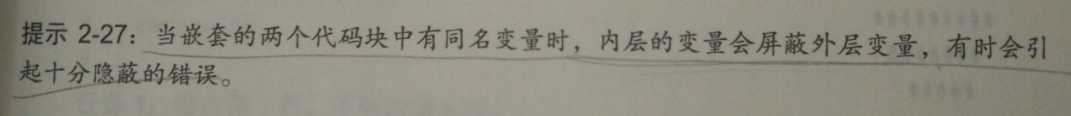 提示 2-27：当嵌套的两个代码块中有同名变量时，内层的变量会屏蔽外层变量，有时会引
起十分隐蔽的错误。